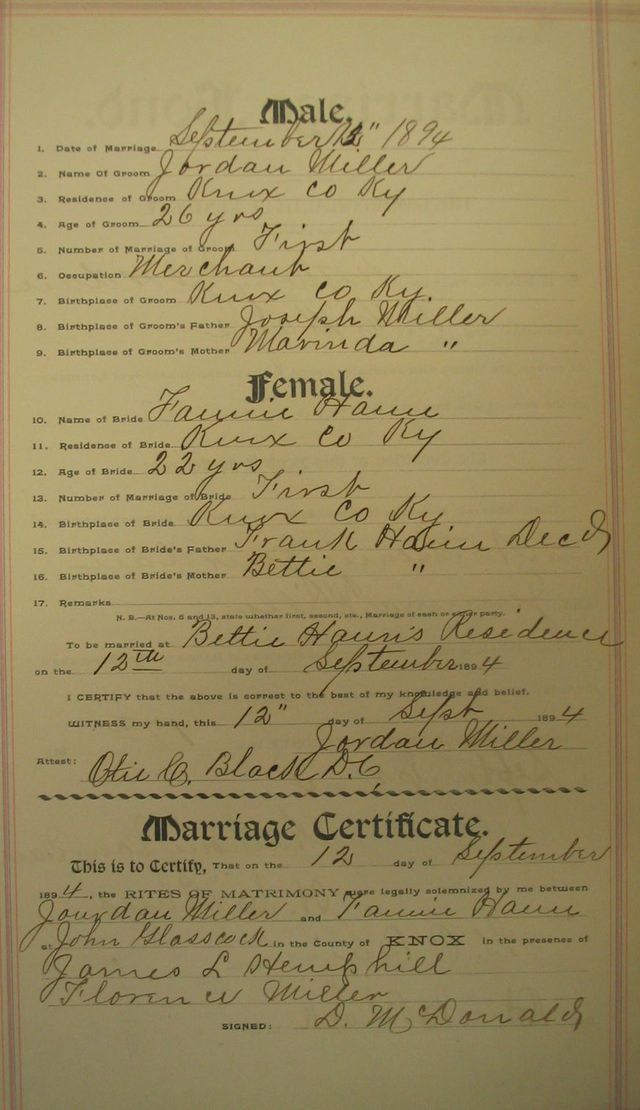 Male.
1. Date of Marriage September 12" 1894
2. Name Of Groom Jordan Miller
3. Residence of Groom Knox Co Ky
4. Age of Groom 26 yrs
5. Number of Marriage of Groom First
6. Occupation Merchant
7. Birthplace of Groom Knox Co Ky.
8. Birthplace of Groom's Father Joseph Miller
9. Birthplace of Groom's Mother Marinda "
Female.
10. Name of Bride Fannie Hann
11. Residence of Bride Knox Co Ky
12. Age of Bride 22 yrs
13. Number of Marriage of Bride First
14. Birthplace of Bride Knox Co Ky
15. Birthplace of Bride's Father Frank Decd
16. Birthplace of Bride's Mother Bettie "
17. Remarks
N. B.—At Nos. 5 and 13, state whether first, second, etc., Marriage of each or either party.
To be married at Bettie Residence
on the 12th day of September 1894
I CERTIFY that the above is correct to the best of my knowledge and belief.
WITNESS my hand, this 12" day of Sept 1894
Jordan Miller
Attest: C. Black D.C
Marriage Certificate.
This is to Certify, That on the 12 day of September
1894, the RITES OF MATRIMONY were legally solemnized by me between
Jourdan Miller and Fannie Hann
at John Glasscock in the County of KNOX in the presence of
James L Hemphill
Florence Miller
SIGNED: D. McDonald